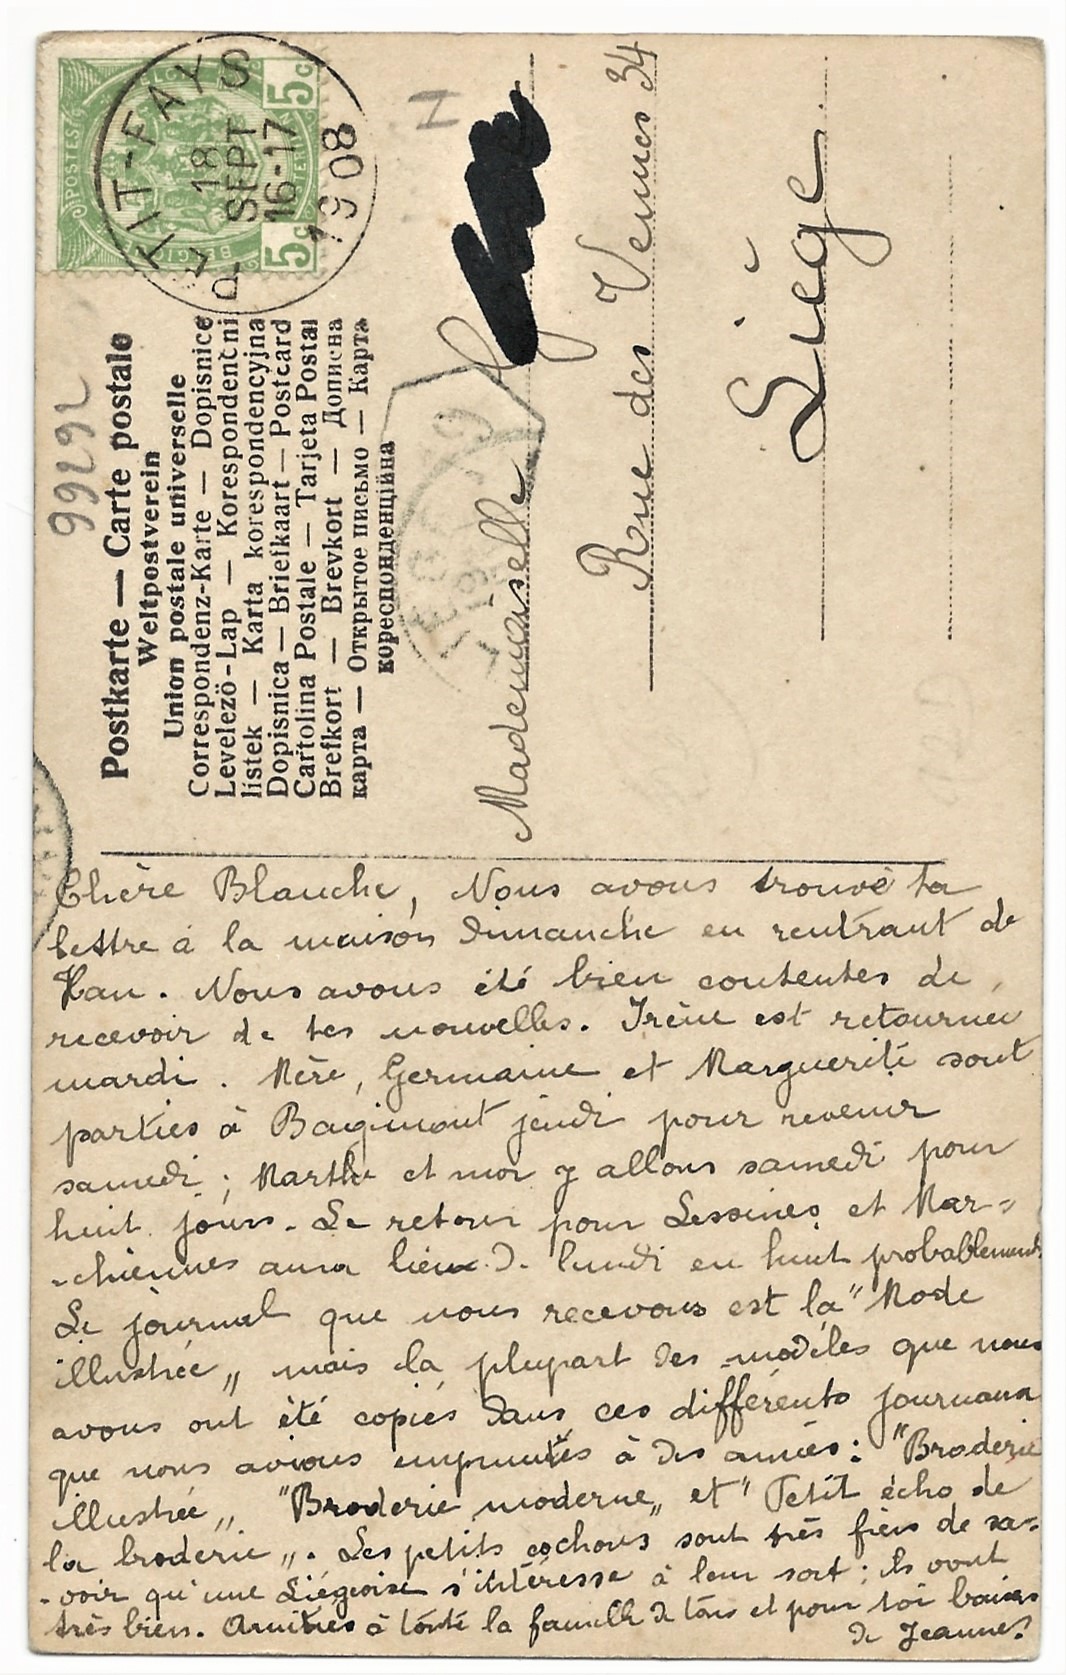 5c
5c
POSTES
PETIT-FAYS
18
SEPT
16-17
1908
H
99292
Postkarte — Carte postale
Weltpostverein
Union postale universelle
Correspondenz-Karte — Dopisnice
Levelező-Lap — Korespondenční
lístek — Karta korespondencyjna
Dopisnica — Briefkaart — Postcard
Cartolina Postale — Tarjeta Postal
Brefkort — Brevkort — Дописна
карта — Открытое письмо — Карта
кореспонденційна
Mademoiselle
Rue des Vennes 34
Liège
Chère Blanche, Nous avons trouvé ta
lettre à la maison dimanche en rentrant de
Han. Nous avons été bien contentes de
recevoir de tes nouvelles. Irène est retournée
mardi. Mère, Germaine et Marguerite sont
parties à Bagimont jeudi pour revenir
samedi ; Marthe et moi y allons samedi pour
huit jours. Le retour pour Lessines et Mar=
-chiennes aura lieu d. lundi en huit probablement
Le journal que nous recevons est la "Mode
illustrée„ mais la plupart des modèles que nous
avons ont été copiés dans ces différents journaux
que nous avions empruntés à des amies : "Broderie
illustrée„ "Broderie moderne„ et "Petit écho de
la broderie„. Les petits cochons sont très fiers de sa-
-voir qu'une Liégeoise s'intéresse à leur sort ; ils vont
très bien. Amitiés à toute la famille de tous et pour toi baisers
de Jeanne.